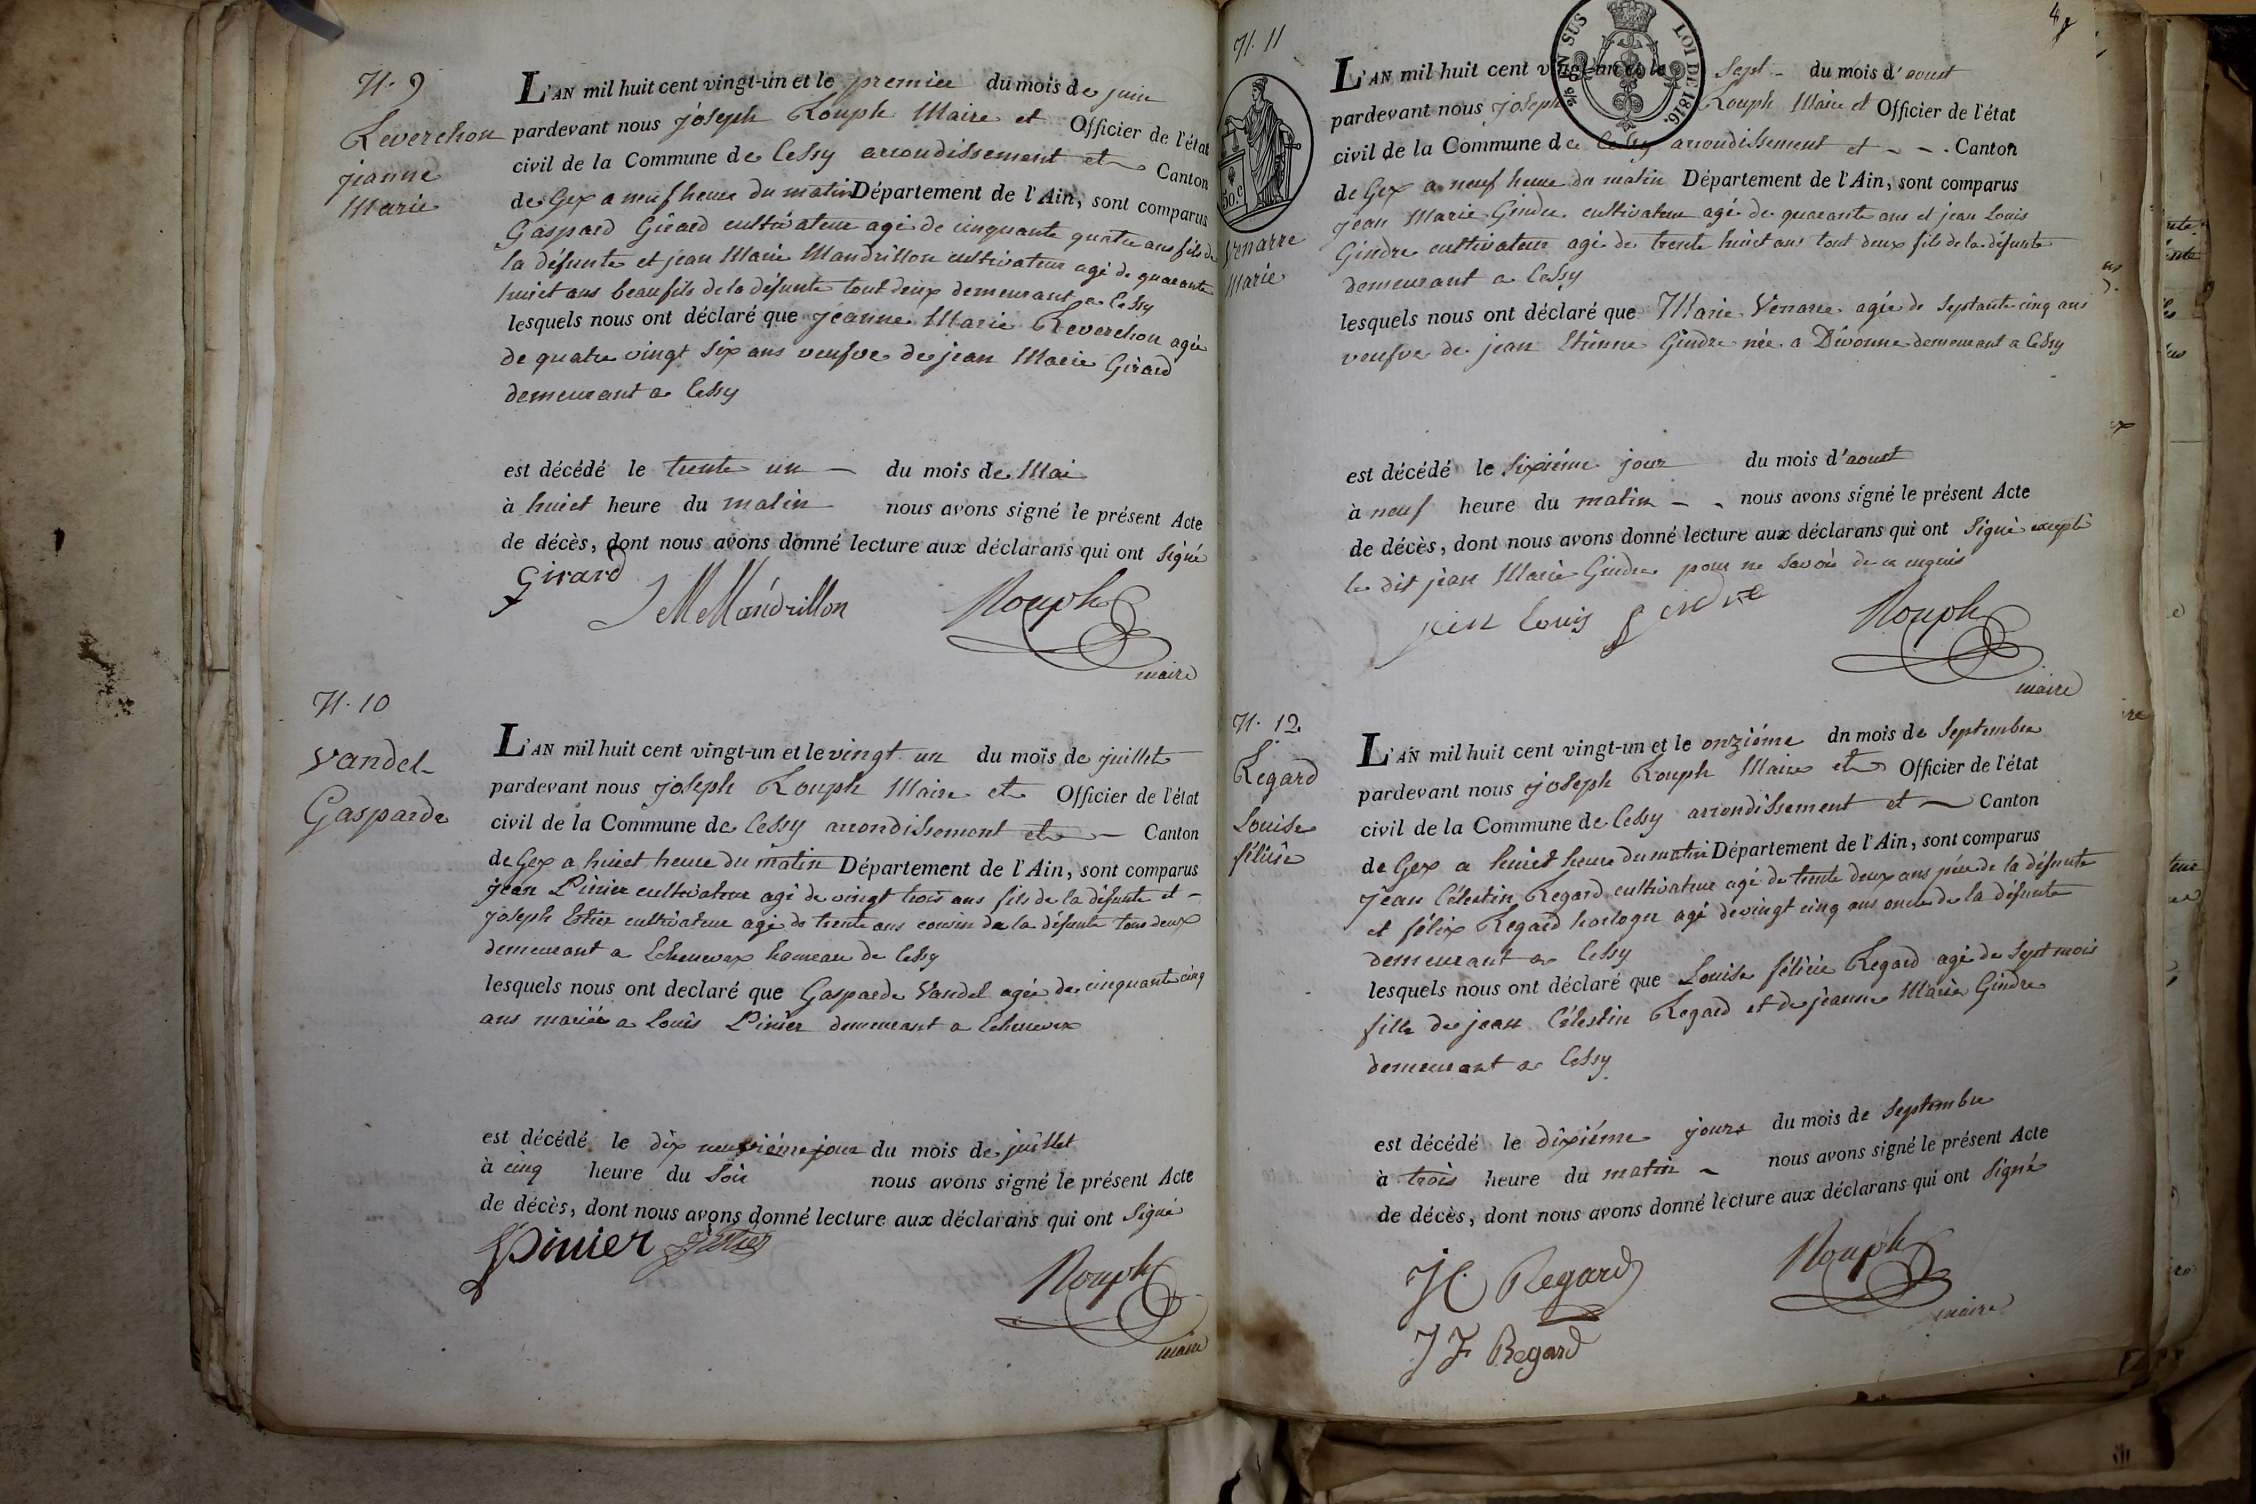 N. 9
Reverchon
jeanne
Marie
L'AN mil huit cent vingt-un et le premier du mois de juin
pardevant nous joseph Rouph Maire et Officier de l'état
civil de la Commune de Cessy arrondissement et Canton
de Gex a neuf heure du matin Département de l'Ain, sont comparus
Gaspard Girard cultivateur agé de cinquante quatre ans fils de
la défunte et jean Marie Mandrillon cultivateur agé de quarante
huict ans beaufils de la défunte tout deux demeurant a Cessy
lesquels nous ont déclaré que jeanne Marie Reverchon agée
de quatre vingt six ans veufve de jean Marie Girard
demeurant a Cessy
est décédé le trente un du mois de Mai
à huict heure du matin nous avons signé le présent Acte
de décès, dont nous avons donné lecture aux déclarans qui ont signé
Girard
JM Mandrillon
Rouph
maire
N. 10
Vandel
Gasparde
L'AN mil huit cent vingt-un et le vingt un du mois de juillet
pardevant nous joseph Rouph Maire et Officier de l'état
civil de la Commune de Cessy arrondissement et Canton
de Gex a huict heure du matin Département de l'Ain, sont comparus
jean Pinier cultivateur agé de vingt trois ans fils de la défunte et
joseph Etier cultivateur agé de trente ans cousin de la défunte tous deux
demeurant a Echenevex hameau de Cessy
lesquels nous ont declaré que Gasparde Vandel agée de cinquante cinq
ans mariée a Louis Pinier demeurant a Echenevex
est décédé le dix neuvième jour du mois de juillet
à cinq heure du soir nous avons signé le présent Acte
de décès, dont nous avons donné lecture aux déclarans qui ont signé
Pinier
Rouph
maire
4
N. 11
EN SUS
LOI DE 1816.
50.c
Venarre
Marie
L'AN mil huit cent vingt-un et le sept du mois d'aoust
pardevant nous joseph Rouph Maire et Officier de l'état
civil de la Commune de Cessy arrondissement et Canton
de Gex a neuf heure du matin Département de l'Ain, sont comparus
jean Marie Gindre cultivateur agé de quarante ans et jean Louis
Gindre cultivateur agé de trente huict ans tout deux fils de la défunte
demeurant a Cessy
lesquels nous ont déclaré que Marie Venarre agée de septante cinq ans
veufve de jean Etienne Gindre née a Divonne demeurant a Cessy
est décédé le sixiéme jour du mois d'aoust
à neuf heure du matin nous avons signé le présent Acte
de décès, dont nous avons donné lecture aux déclarans qui ont signé excepté
le dit jean Marie Gindre pour ne savoir de ce enquis
jean Louis gindre
Rouph
maire
N. 12
Regard
Louise
félicie
L'AN mil huit cent vingt-un et le onziéme dn mois de septembre
pardevant nous joseph Rouph Maire et Officier de l'état
civil de la Commune de Cessy arrondissement et Canton
de Gex a huict heure du matin Département de l'Ain, sont comparus
jean Célestin Regard cultivateur agé de trente deux ans pére de la défunte
et félix Regard horloger agé de vingt cinq ans oncle de la défunte
demeurant a Cessy
lesquels nous ont déclaré que Louise félicie Regard agé de sept mois
fille de jean Célestin Regard et de jeanne Marie Gindre
demeurant a Cessy
est décédé le dixiéme jours du mois de septembre
à trois heure du matin nous avons signé le présent Acte
de décès, dont nous avons donné lecture aux déclarans qui ont signé
JC Regard
Rouph
maire
JF Regard